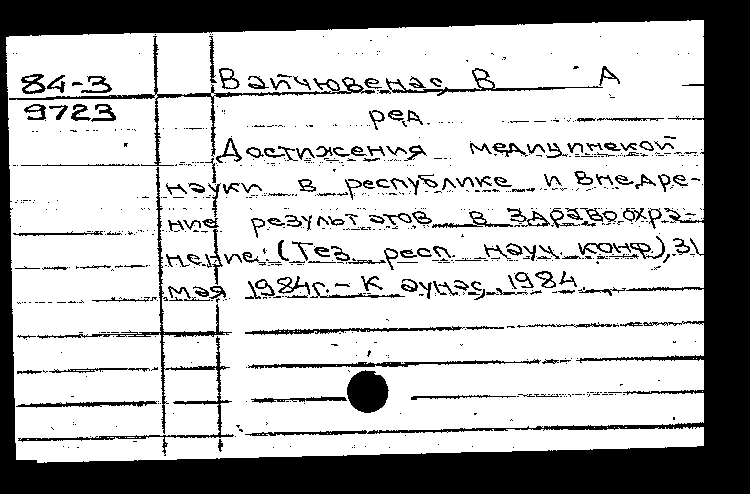 84-3
9723
Вайчювенас, В А
ред.
Достижения медицинской
науки в республике и внедре-
ние результатов в здравоохра-
нение: (Тез. респ. науч. конф.), 31
мая 1984г. - Каунас, 1984.